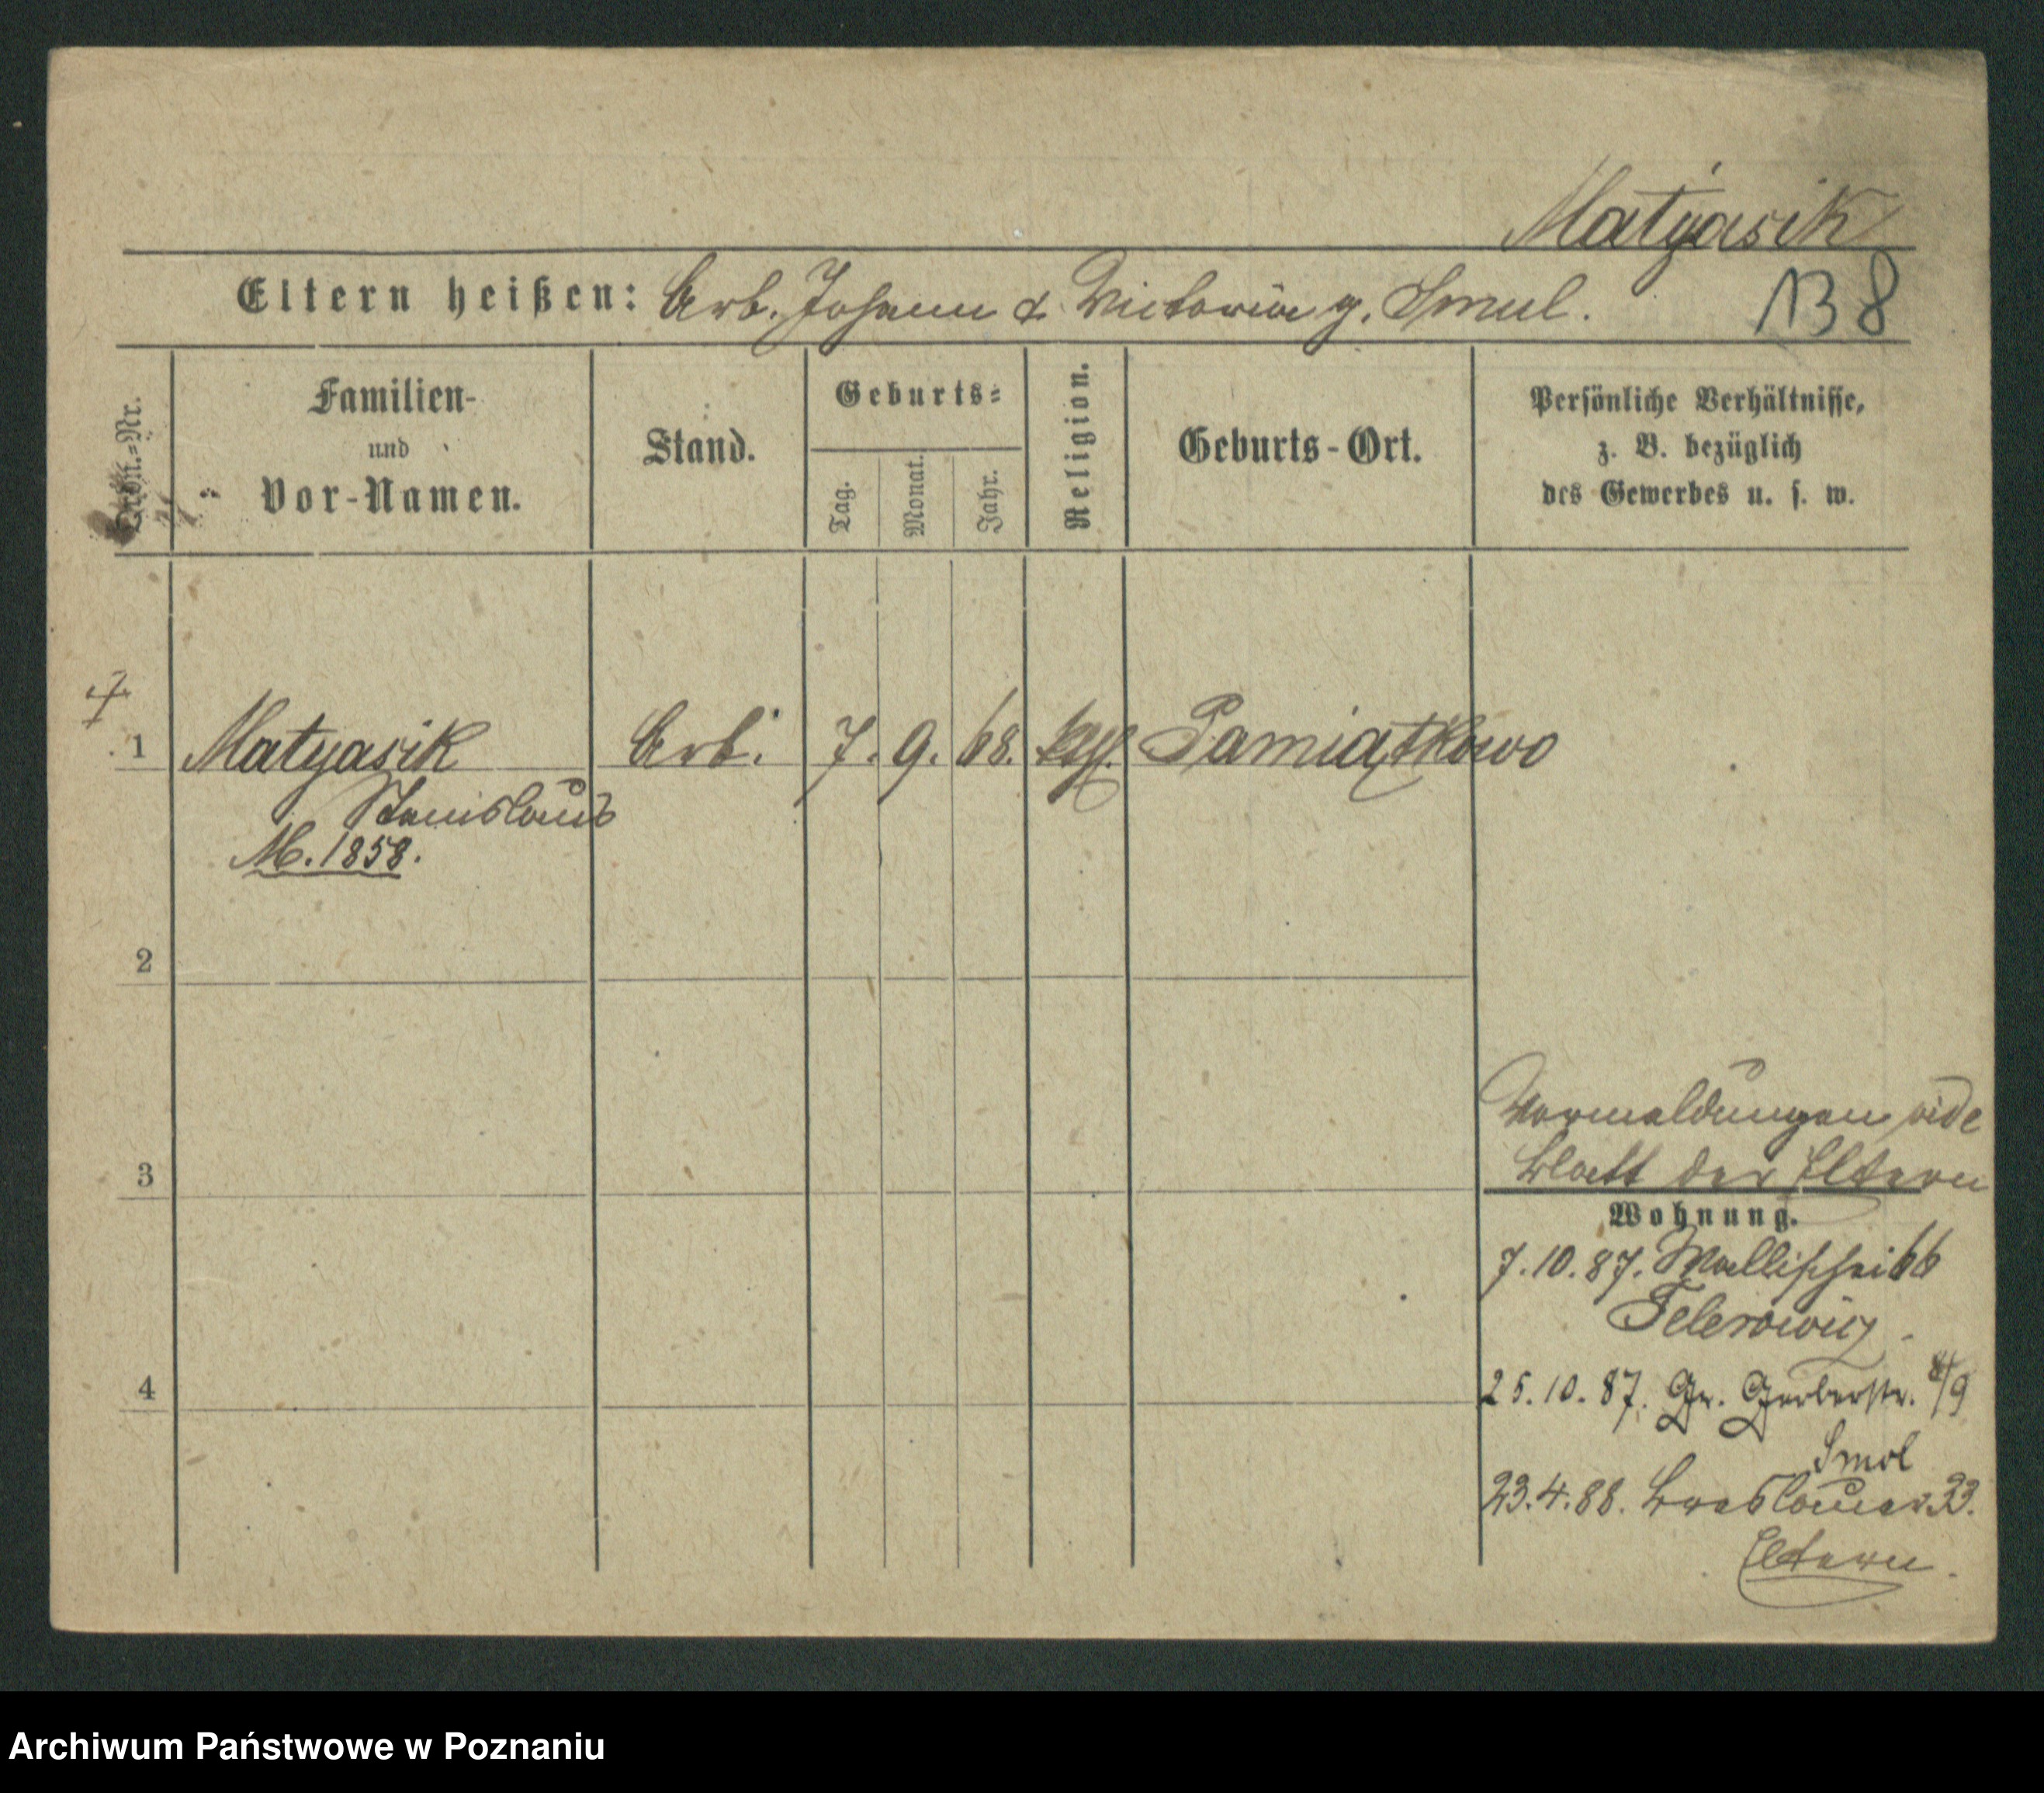 Matyasik
Eltern heißen: Arb. Johann & Victoria g. Smul.
138
Ordn.-Nr.
Familien-
und
Vor-Namen.
Stand.
Geburts-
Tag.
Monat.
Jahr.
Religion.
Geburts-Ort.
Persönliche Verhältnisse,
z. B. bezüglich
des Gewerbes u. s. w.
1 Matyasik Arb. 7. 9. 68. kath. Pamiątkowo
Stanislaus
M. 1858.
2
3
4
Vormeldungen vide
Blatt der Eltern
Wohnung.
7.10.87. Wallischei 66
25.10.87. Gr. Gerberstr. 8/9
Smol
23.4.88. Breslauer 33.
Eltern.
Archiwum Państwowe w Poznaniu